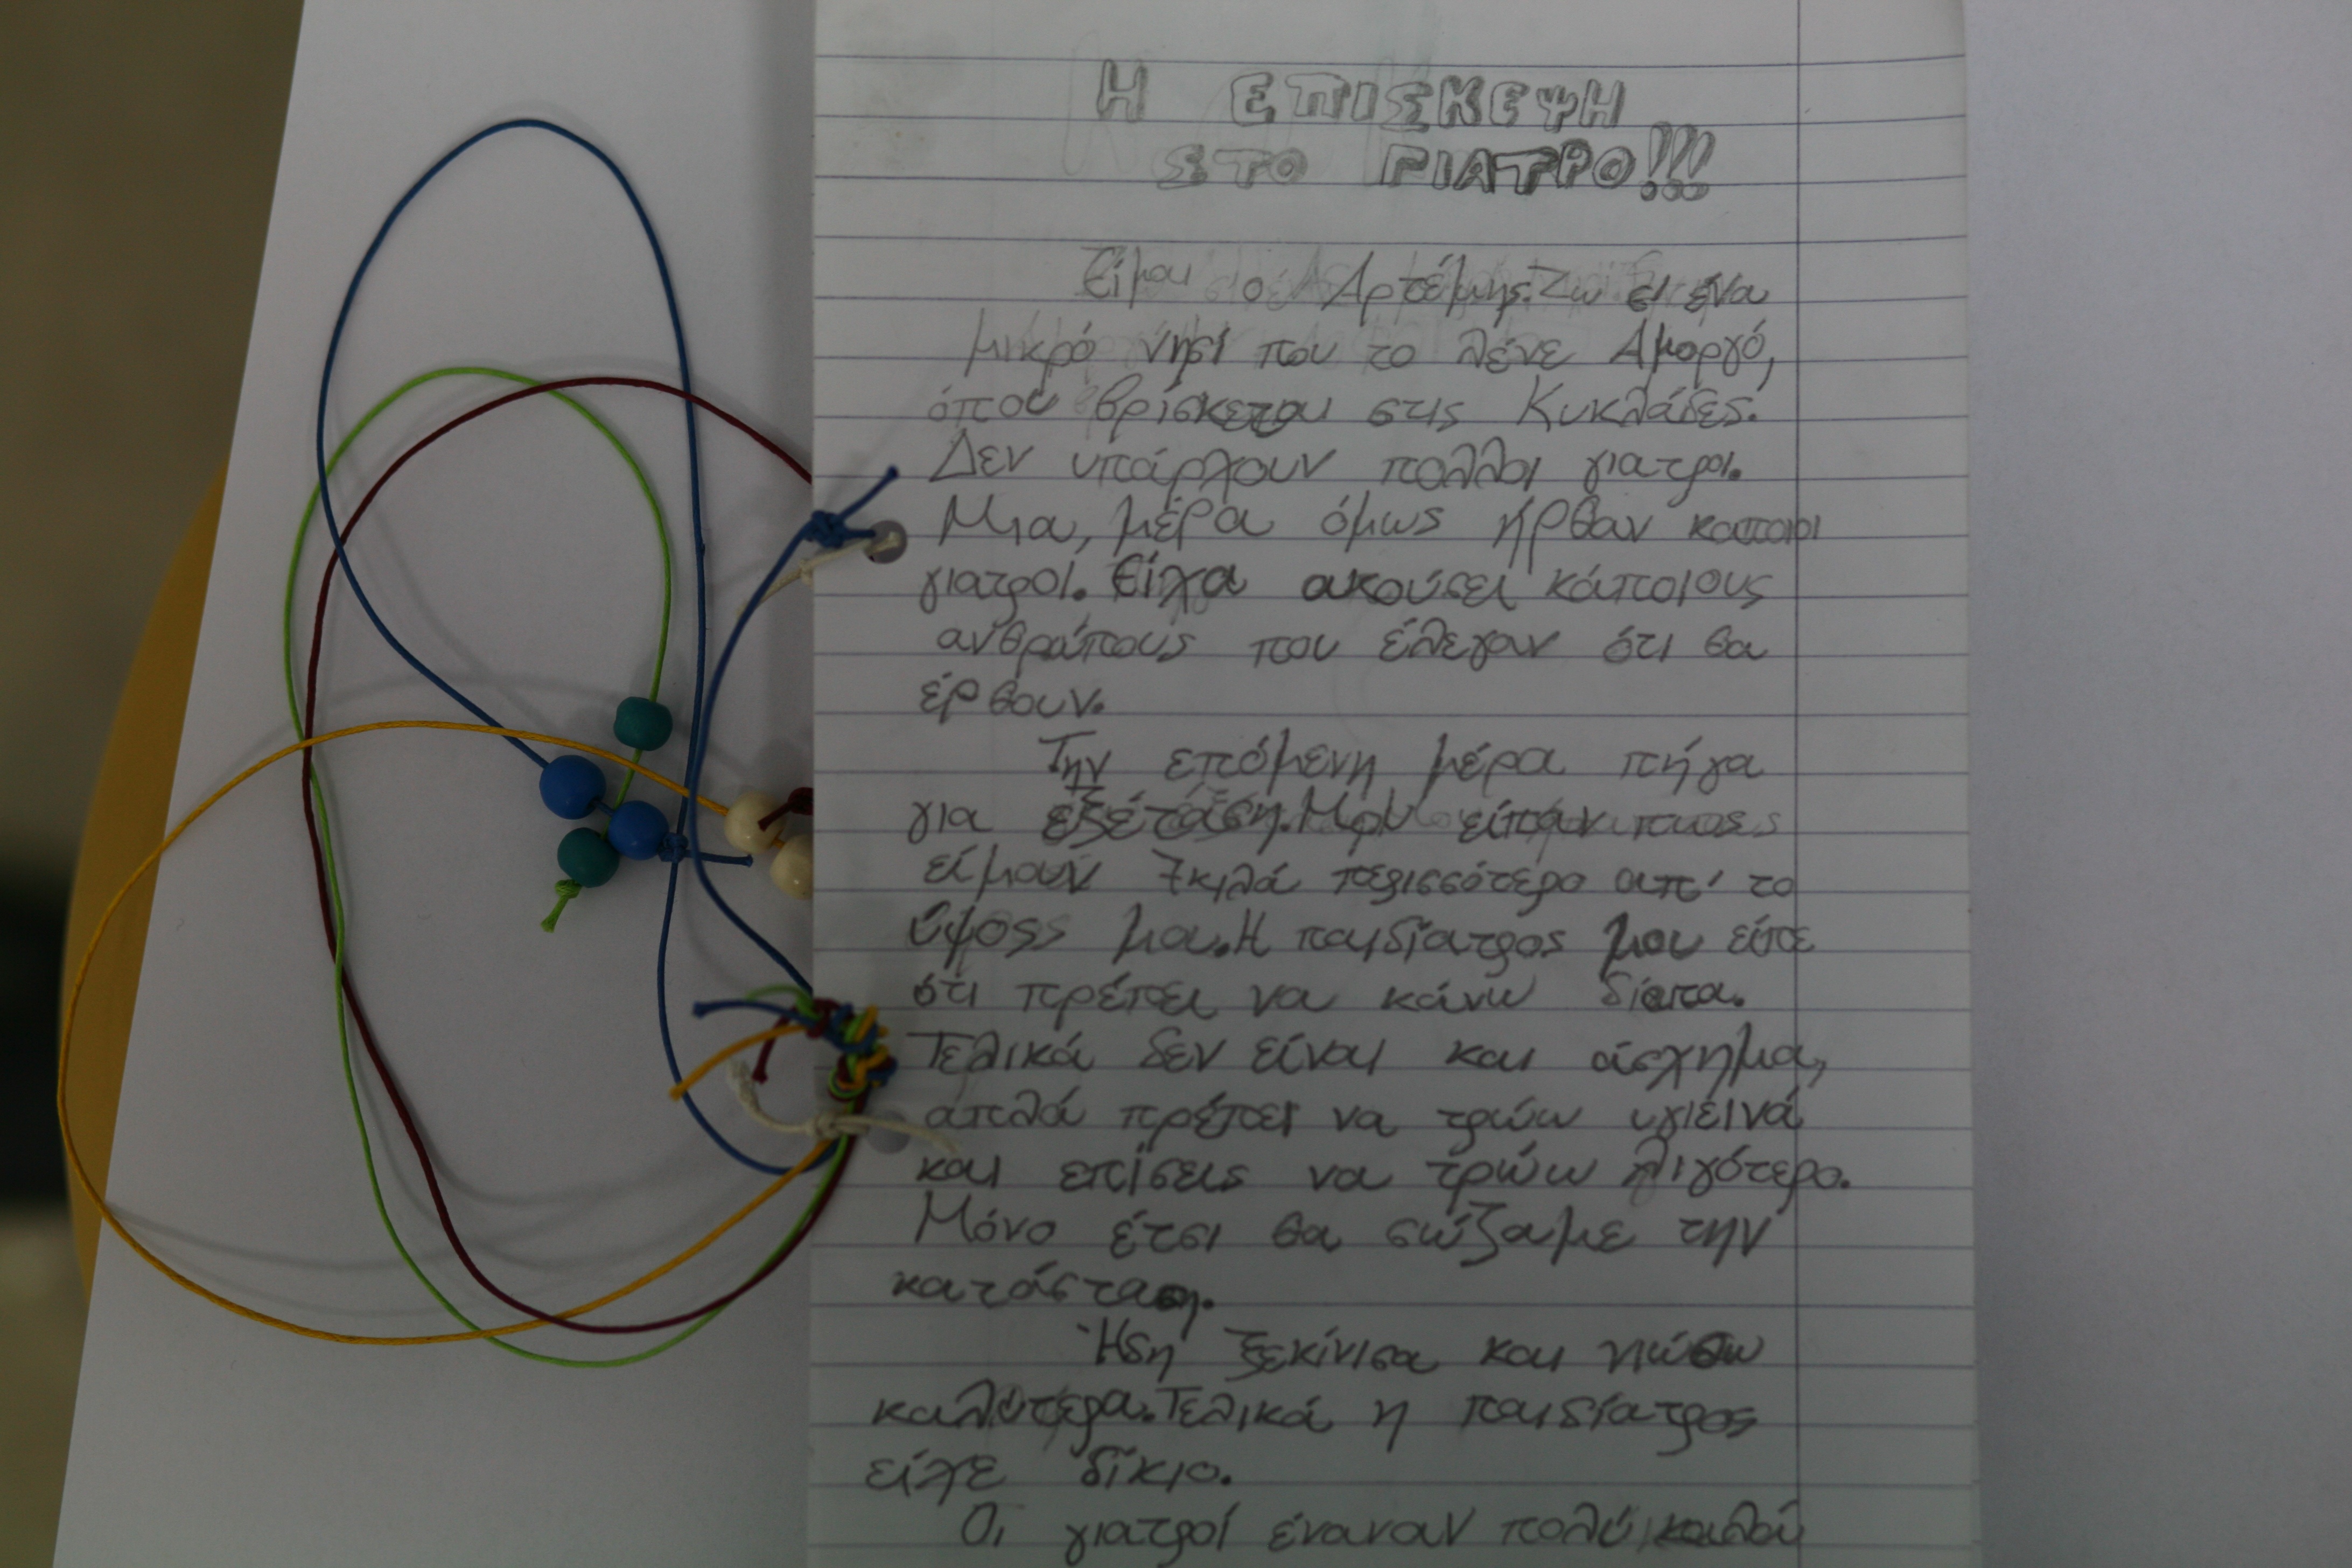 Η ΕΠΙΣΚΕΨΗ
ΣΤΟ ΓΙΑΤΡΟ!!!
Είμαι ο Αρτέμης. Ζω σι ένα
μικρό νησί που το λένε Αμοργό,
όπου βρίσκεται στις Κυκλάδες.
Δεν υπάρχουν πολλοι γιατροι.
Μια, μέρα όμως ήρθαν καποιοι
γιατροί. Είχα ακούσει κάποιους
ανθρώπους που έλεγαν ότι θα
έρθουν.
Την επόμενη μέρα πήγα
για εξέταση. Μου είπαν πως
είμουν 7κιλά περισσότερο απ' το
ύψος μου. Η παιδίατρος μου είπε
ότι πρέπει να κάνω δίαιτα.
Τελικά δεν είναι και άσχημα,
απλά πρέπει να τρώω υγιεινά
και επίσεις να τρώω λιγότερο.
Μόνο έτσι θα σώζαμε την
κατάσταση.
Ήδη ξεκίνισα και νιώθω
καλύτερα. Τελικά η παιδίατρος
είχε δίκιο.
Οι γιατροί έναναν πολύ καλού